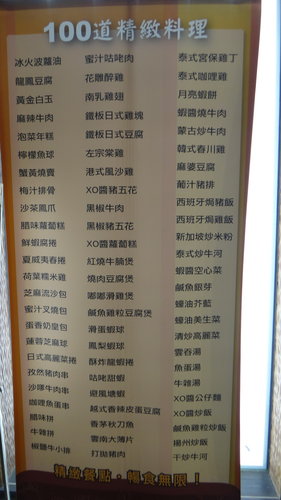 100道精緻料理
冰火波蘿油
龍鳳豆腐
黃金白玉
麻辣牛肉
泡菜年糕
檸檬魚球
蟹黃燒賣
梅汁排骨
沙茶鳳爪
腊味蘿蔔糕
鮮蝦腐捲
夏威夷春捲
荷葉糯米雞
芝麻流沙包
蜜汁叉燒包
蛋香奶皇包
蓮蓉芝麻球
日式高麗菜捲
孜然豬肉串
沙嗲牛肉串
咖哩魚蛋串
腊味拼
牛雜拼
椒鹽牛小排
蜜汁咕咾肉
花雕醉雞
南乳雞翅
鐵板日式雞塊
鐵板日式豆腐
左宗棠雞
港式風沙雞
XO醬豬五花
黑椒牛肉
黑椒豬五花
XO醬蘿蔔糕
紅燒牛腩煲
燒肉豆腐煲
嘟嘟滑雞煲
鹹魚雞粒豆腐煲
滑蛋蝦球
鳳梨蝦球
酥炸龍蝦捲
咕咾甜蝦
避風塘蝦
越式香辣皮蛋豆腐
香茅秋刀魚
雲南大薄片
打拋豬肉
泰式宮保雞丁
泰式咖哩雞
月亮蝦餅
蝦醬燒牛肉
蒙古炒牛肉
韓式春川雞
麻婆豆腐
葡汁豬排
西班牙焗豬飯
西班牙焗雞飯
新加坡炒米粉
泰式炒牛河
蝦醬空心菜
鹹魚銀芽
蠔油芥藍
蠔油美生菜
清炒高麗菜
雲吞湯
魚蛋湯
牛雜湯
XO醬公仔麵
XO醬炒飯
鹹魚雞粒炒飯
揚州炒飯
干炒牛河
精緻餐點，暢食無限！